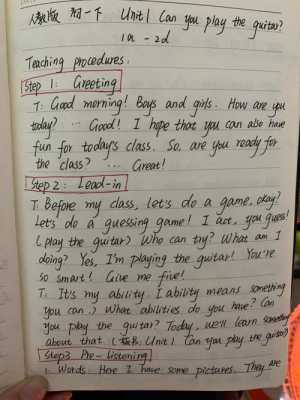 人教版 初一下 Unit 1 Can you play the guitar?
1a - 2d
Teaching procedures:
Step 1: Greeting
T: Good morning! Boys and girls. How are you
today? ... Good! I hope that you can also have
fun for today's class. So, are you ready for
the class? ... Great!
Step 2: Lead-in
T. Before my class, let's do a game, okay?
Let's do a guessing game! I act, you guess!
(play the guitar) Who can try? What am I
doing? Yes, I'm playing the guitar! You're
so smart! Give me five!
T: It's my ability. (ability means something
you can.) What abilities do you have? Can
you play the guitar? Today, we'll learn something
about that. (板书: Unit 1 Can you play the guitar?)
Step3 Pre-listening
1. Words. Here I have some pictures. They are